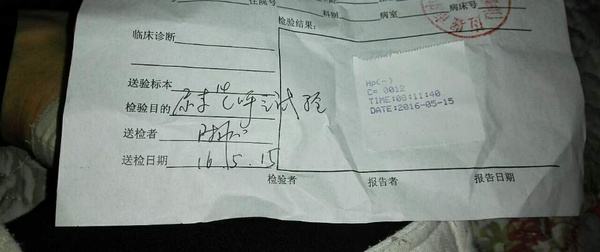 住院号 科别 病室 病床号
检验结果:
临床诊断
送验标本
检验目的 尿素14C呼气试验
送检者
送检日期 16.5.15
Hp(-)
C= 0012
TIME:09:11:40
DATE:2016-05-15
检验者 报告者 报告日期